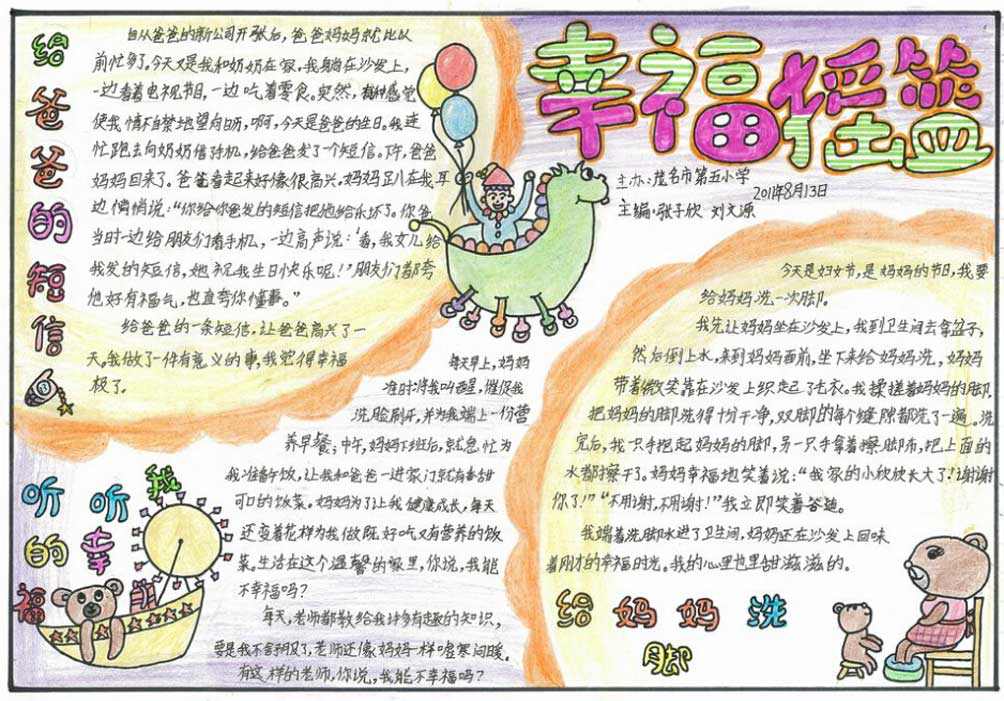 幸福摇篮
主办:茂名市第五小学
2011年8月13日
主编:张子欣 刘文源
给爸爸的短信
自从爸爸的新公司开张后，爸爸妈妈就比以
前忙多了。今天又是我和奶奶在家，我躺在沙发上，
一边看着电视节目，一边吃着零食。突然，有种感觉
使我情不自禁地望向日历，啊，今天是爸爸的生日。我连
忙跑去向奶奶借手机，给爸爸发了个短信。下午，爸爸
妈妈回来了。爸爸看起来好像很高兴。妈妈趴在我耳
边悄悄说：“你给你爸发的短信把他给乐坏了。你爸
当时一边给朋友们看手机，一边高声说：‘看，我女儿给
我发的短信，她祝我生日快乐呢！’朋友们都夸
他好有福气，也直夸你懂事。”
给爸爸的一条短信，让爸爸高兴了一
天。我做了一件有意义的事，我觉得幸福
极了。
听听我
的幸
福
每天早上，妈妈
准时将我叫醒，催促我
洗脸刷牙，并为我端上一份营
养早餐；中午，妈妈下班后，就急忙为
我准备午饭，让我和爸爸一进家门就有香甜
可口的饭菜。妈妈为了让我健康成长，每天
还变着花样为我做既好吃又有营养的饭
菜。生活在这个温馨的家里，你说，我能
不幸福吗？
每天，老师都教给我许多有趣的知识，
要是我不舒服了，老师还像妈妈一样嘘寒问暖。
有这样的老师，你说，我能不幸福吗？
今天是妇女节，是妈妈的节日，我要
给妈妈洗一次脚。
我先让妈妈坐在沙发上，我到卫生间去拿盆子，
然后倒上水，来到妈妈面前，坐下来给妈妈洗，妈妈
带着微笑靠在沙发上织起了毛衣。我揉搓着妈妈的脚，
把妈妈的脚洗得十分干净，双脚的每个缝隙都洗了一遍。洗
完后，我一只手把起妈妈的脚，另一只手拿着擦脚布，把上面的
水都擦干了。妈妈幸福地笑着说：“我家的小欣欣长大了！谢谢
你了！”“不用谢，不用谢！”我立即笑着答道。
我端着洗脚水进了卫生间，妈妈还在沙发上回味
着刚才的幸福时光。我的心里也里甜滋滋的。
给妈妈洗
脚